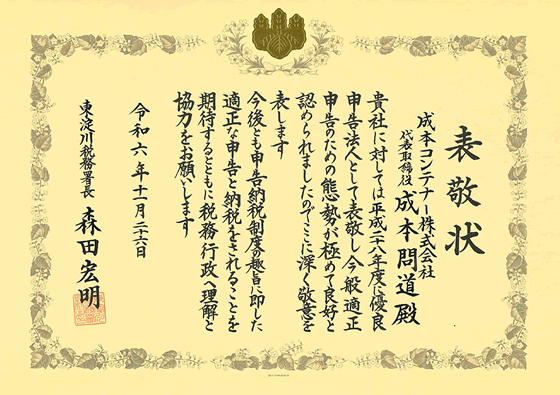 表敬状
成本コンテナー株式会社
代表取締役 成本問道殿
貴社に対しては平成二十八年度に優良
申告法人として表敬し今般適正
申告のための態勢が極めて良好と
認められましたのでここに深く敬意を
表します
今後とも申告納税制度の趣旨に即した
適正な申告と納税をされることを
期待するとともに税務行政へ理解と
協力をお願いします
令和六年十一月二十六日
東淀川税務署長 森田宏明